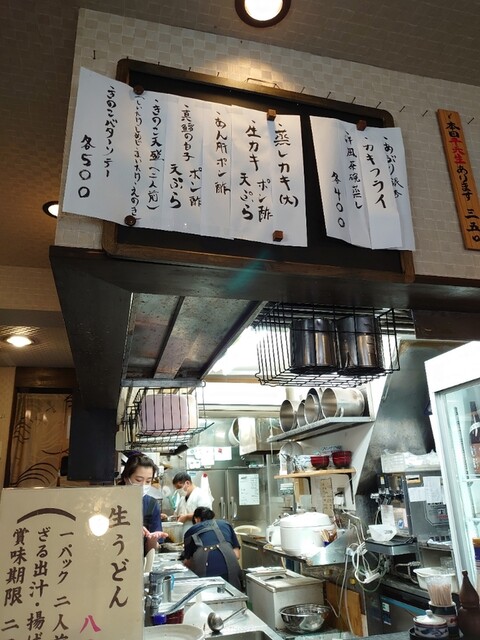 あぶり
カキフライ
洋風茶碗蒸し
各400
蒸しカキ(大)
生カキ ポン酢
天ぷら
あん肝ポン酢
真鱈の白子 ポン酢
天ぷら
きのこ天盛(二人前)
きのこバターソテー
各500
本日生大生あります 三五〇
生うどん 八
一パック 二人前
ざる出汁・揚げ
賞味期限 二